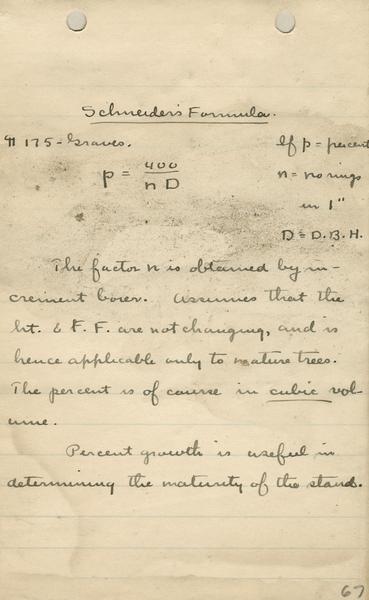 Schneider's Formula.
¶ 175 - Graves.
If p = percent
p = 400 / n D
n = no rings
in 1"
D = D.B.H.
The factor n is obtained by in-
crement borer. Assumes that the
ht. & F. F. are not changing, and is
hence applicable only to mature trees.
The percent is of course in cubic vol-
ume.
Percent growth is useful in
determining the maturity of the stand.
67